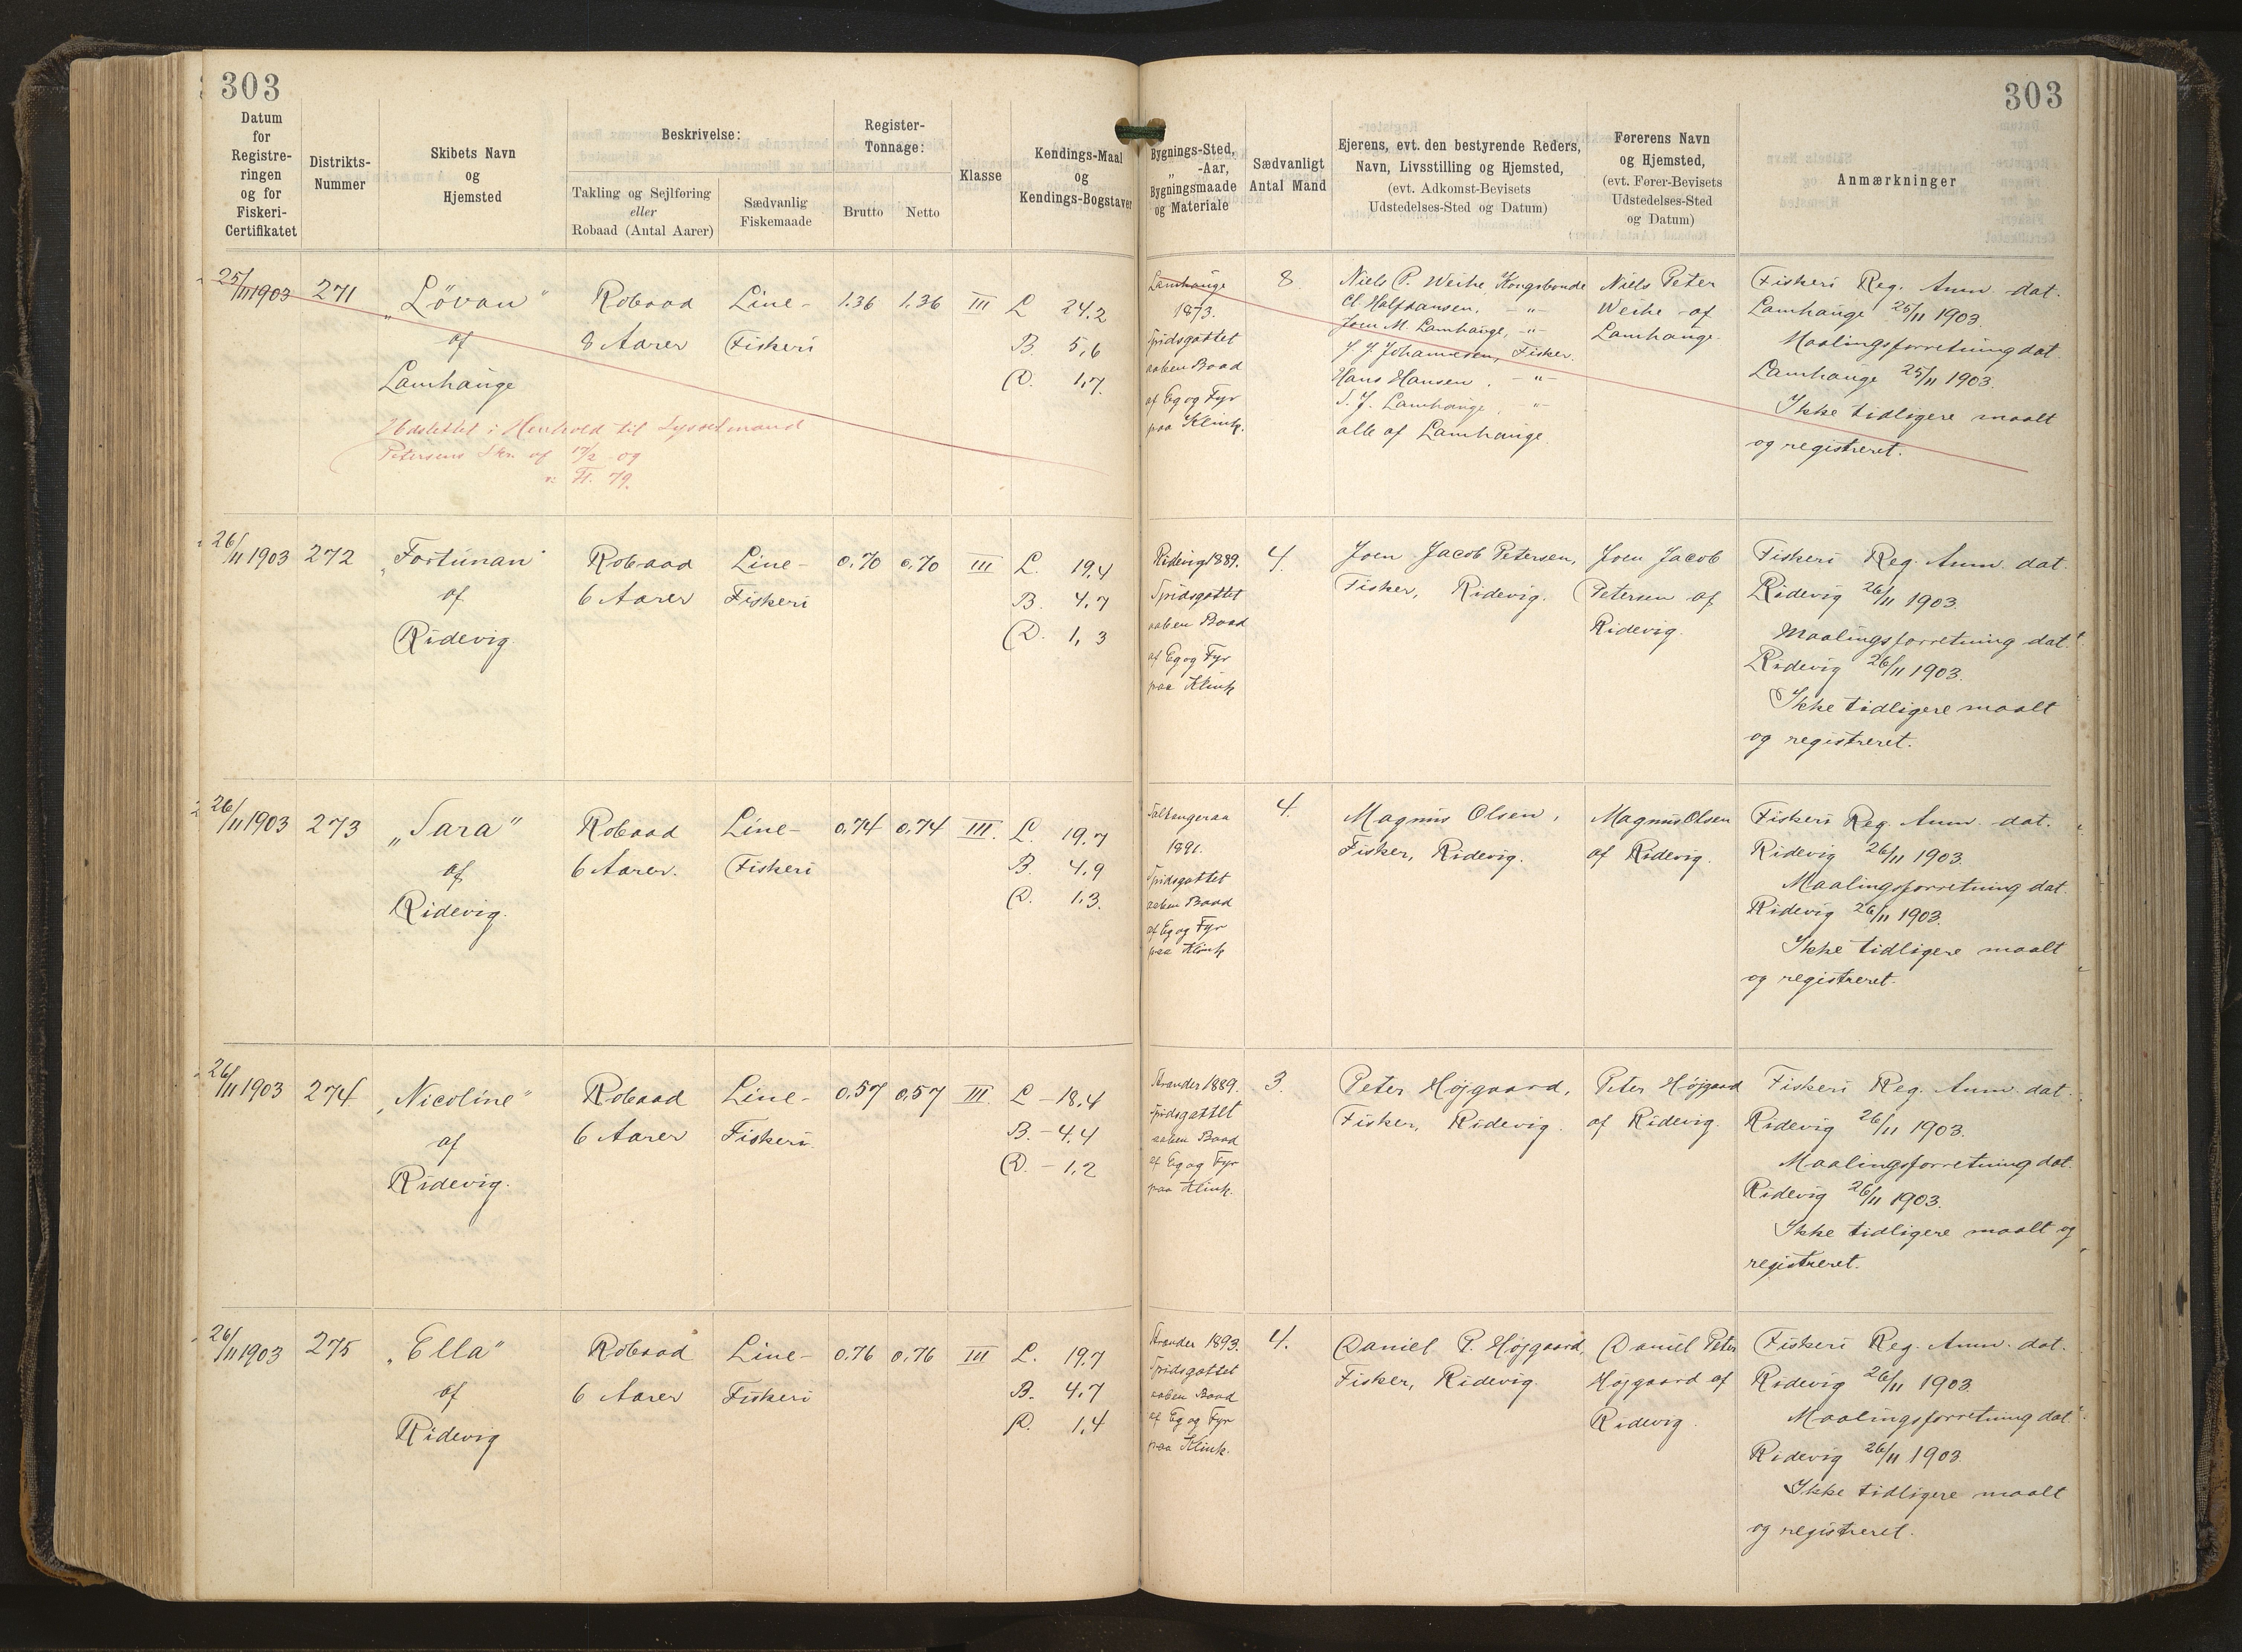 303
303
Datum
for
Registre-
ringen
og for
Fiskeri-
Certifikatet
Distrikts-
Nummer
Skibets Navn
og
Hjemsted
Beskrivelse:
Takling og Sejlføring
eller
Robaad (Antal Aarer)
Sædvanlig
Fiskemaade
Register-
Tonnage:
Brutto
Netto
Klasse
Kendings-Maal
og
Kendings-Bogstaver
Bygnings-Sted,
„ -Aar,
Bygningsmaade
og Materiale
Sædvanligt
Antal Mand
Ejerens, evt. den bestyrende Reders,
Navn, Livsstilling og Hjemsted,
(evt. Adkomst-Bevisets
Udstedelses-Sted og Datum)
Førerens Navn
og Hjemsted,
(evt. Fører-Bevisets
Udstedelses-Sted
og Datum)
Anmærkninger
25/11 1903
271
„Lövan"
af
Lamhauge
Robaad
8 Aarer
Line-
Fiskeri
1.36
1.36
III
L 24.2
B. 5,6
D. 1,7.
Udslettet i Henhold til Sysselmand
Petersens Skr. af 17/2 og
Fl. 79.
Lamhauge
1873.
Spidsgattet
aaben Baad
af Eg og Fyr
paa Klink.
8
Niels P. Weihe, Kongsbonde
Cl. Halfdansen, -"-
Joen M. Lamhauge, -"-
J J Johannesen, Fisker.
Hans Hansen, -"-
S. J. Lamhauge, -"-
alle af Lamhauge.
Niels Peter
Weihe af
Lamhauge.
Fiskeri Reg. Anm. dat.
Lamhauge 25/11 1903.
Maalingsforretning dat.
Lamhauge 25/11 1903.
Ikke tidligere maalt
og registreret.
26/11 1903
272
„Fortunan"
af
Ridevig.
Robaad
6 Aarer
Line-
Fiskeri
0,70
0,70
III
L. 19,4
B. 4,7
D. 1,3
Ridevig 1889.
Spidsgattet
aaben Baad
af Eg og Fyr
paa Klink
4.
Joen Jacob Petersen,
Fisker, Ridevig.
Joen Jacob
Petersen af
Ridevig.
Fiskeri Reg. Anm. dat.
Ridevig 26/11 1903.
Maalingsforretning dat.
Ridevig 26/11 1903.
Ikke tidligere maalt
og registreret.
26/11 1903
273
„Sara"
af
Ridevig.
Robaad
6 Aarer.
Line-
Fiskeri
0,74
0,74
III.
L. 19,7
B. 4,9
D. 1,3.
Saltangeraa
1891.
Spidsgattet
aaben Baad
af Eg og Fyr
paa Klink
4.
Magnus Olsen,
Fisker, Ridevig.
Magnus Olsen
af Ridevig.
Fiskeri Reg. Anm. dat.
Ridevig 26/11 1903.
Maalingsforretning dat.
Ridevig 26/11 1903.
Ikke tidligere maalt
og registreret.
26/11 1903
274
„Nicoline"
af
Ridevig.
Robaad
6 Aarer
Line-
Fiskeri.
0,57
0,57
III.
L - 18,4
B. - 4,4
D. - 1,2
Strander 1889.
Spidsgattet
aaben Baad
af Eg og Fyr
paa Klink.
3.
Peter Højgaard,
Fisker, Ridevig.
Peter Højgaard
af Ridevig.
Fiskeri Reg. Anm. dat.
Ridevig 26/11 1903.
Maalingsforretning dat.
Ridevig 26/11 1903.
Ikke tidligere maalt og
registreret.
26/11 1903
275
„Ella"
af
Ridevig
Robaad
6 Aarer
Line-
Fiskeri
0,76
0,76
III
L. 19,7
B. 4,7
D. 1,4
Strander 1893.
Spidsgattet
aaben Baad
af Eg og Fyr
paa Klink.
4.
Daniel P. Højgaard,
Fisker, Ridevig.
Daniel Peter
Højgaard af
Ridevig.
Fiskeri Reg. Anm. dat.
Ridevig 26/11 1903.
Maalingsforretning dat.
Ridevig 26/11 1903.
Ikke tidligere maalt
og registreret.